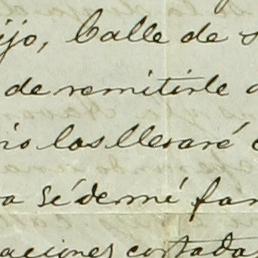 ijo, Calle de s
de remitirle
io las llevaré
a sé dermé far
aciones cortadas